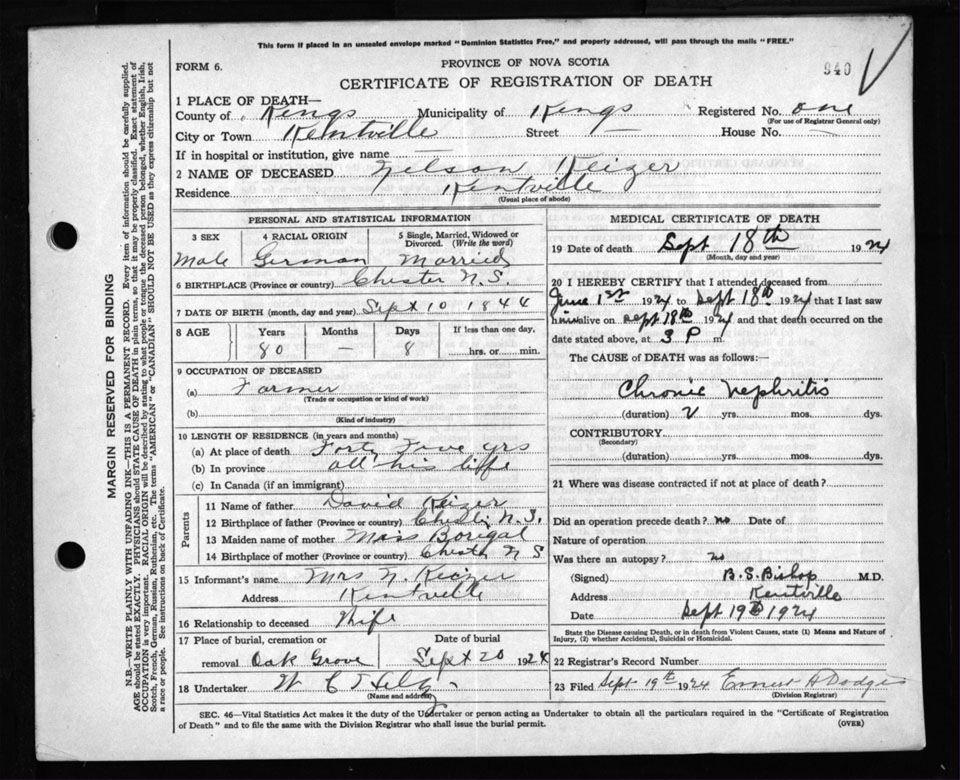 This form if placed in an unsealed envelope marked "Dominion Statistics Free," and properly addressed, will pass through the mails "FREE."
FORM 6.
PROVINCE OF NOVA SCOTIA
940
CERTIFICATE OF REGISTRATION OF DEATH
1 PLACE OF DEATH—
County of Kings Municipality of Kings Registered No. one
(For use of Registrar General only)
City or Town Kentville Street — House No. —
If in hospital or institution, give name —
2 NAME OF DECEASED Nelson Keizer
Residence Kentville
(Usual place of abode)
PERSONAL AND STATISTICAL INFORMATION
3 SEX 4 RACIAL ORIGIN 5 Single, Married, Widowed or Divorced. (Write the word)
Male German Married
6 BIRTHPLACE (Province or country) Chester N.S.
7 DATE OF BIRTH (month, day and year) Sept 10 1844
8 AGE Years Months Days If less than one day,
80 — 8 ......hrs. or ......min.
9 OCCUPATION OF DECEASED
(a) Farmer
(Trade or occupation or kind of work)
(b)
(Kind of industry)
10 LENGTH OF RESIDENCE (in years and months)
(a) At place of death Forty Five yrs
(b) In province all his liffe
(c) In Canada (if an immigrant)
Parents
11 Name of father David Keizer
12 Birthplace of father (Province or country) Chester N.S.
13 Maiden name of mother
14 Birthplace of mother (Province or country) Chester N S
15 Informant's name Mrs N. Keizer
Address Kentville
16 Relationship to deceased Wife
17 Place of burial, cremation or removal Oak Grove
Date of burial Sept 20 1924
18 Undertaker W C
(Name and address)
MEDICAL CERTIFICATE OF DEATH
19 Date of death Sept 18th 1924
(Month, day and year)
20 I HEREBY CERTIFY that I attended deceased from
June 1st 1924 to Sept 18th 1924 that I last saw
him alive on Sept 18th 1924 and that death occurred on the
date stated above, at 3 P m.
The CAUSE of DEATH was as follows:—
Chronic Nephritis
(duration) V yrs. mos. dys.
CONTRIBUTORY
(Secondary)
(duration) yrs. mos. dys.
21 Where was disease contracted if not at place of death?
Did an operation precede death? no Date of
Nature of operation
Was there an autopsy? no
(Signed) B.S. Bishop M.D.
Address Kentville
Date Sept 19th 1924
State the Disease causing Death, or in death from Violent Causes, state (1) Means and Nature of
Injury, (2) whether Accidental, Suicidal or Homicidal.
22 Registrar's Record Number
23 Filed Sept 19th 1924 Ernest A Dodge
(Division Registrar)
SEC. 46—Vital Statistics Act makes it the duty of the Undertaker or person acting as Undertaker to obtain all the particulars required in the "Certificate of Registration
of Death" and to file the same with the Division Registrar who shall issue the burial permit.
(OVER)
MARGIN RESERVED FOR BINDING
N.B.—WRITE PLAINLY WITH UNFADING INK—THIS IS A PERMANENT RECORD. Every item of information should be carefully supplied.
AGE should be stated EXACTLY. PHYSICIANS should STATE CAUSE OF DEATH in plain terms, so that it may be properly classified. Exact statement of
OCCUPATION is very important. RACIAL ORIGIN will be described by stating to what people or tongue the deceased person belonged, whether English, Irish,
Scotch, French, German, Russian, Ruthenian, etc. The terms "AMERICAN" or "CANADIAN" SHOULD NOT BE USED as they express citizenship but not
a race or people. See instructions on back of Certificate.